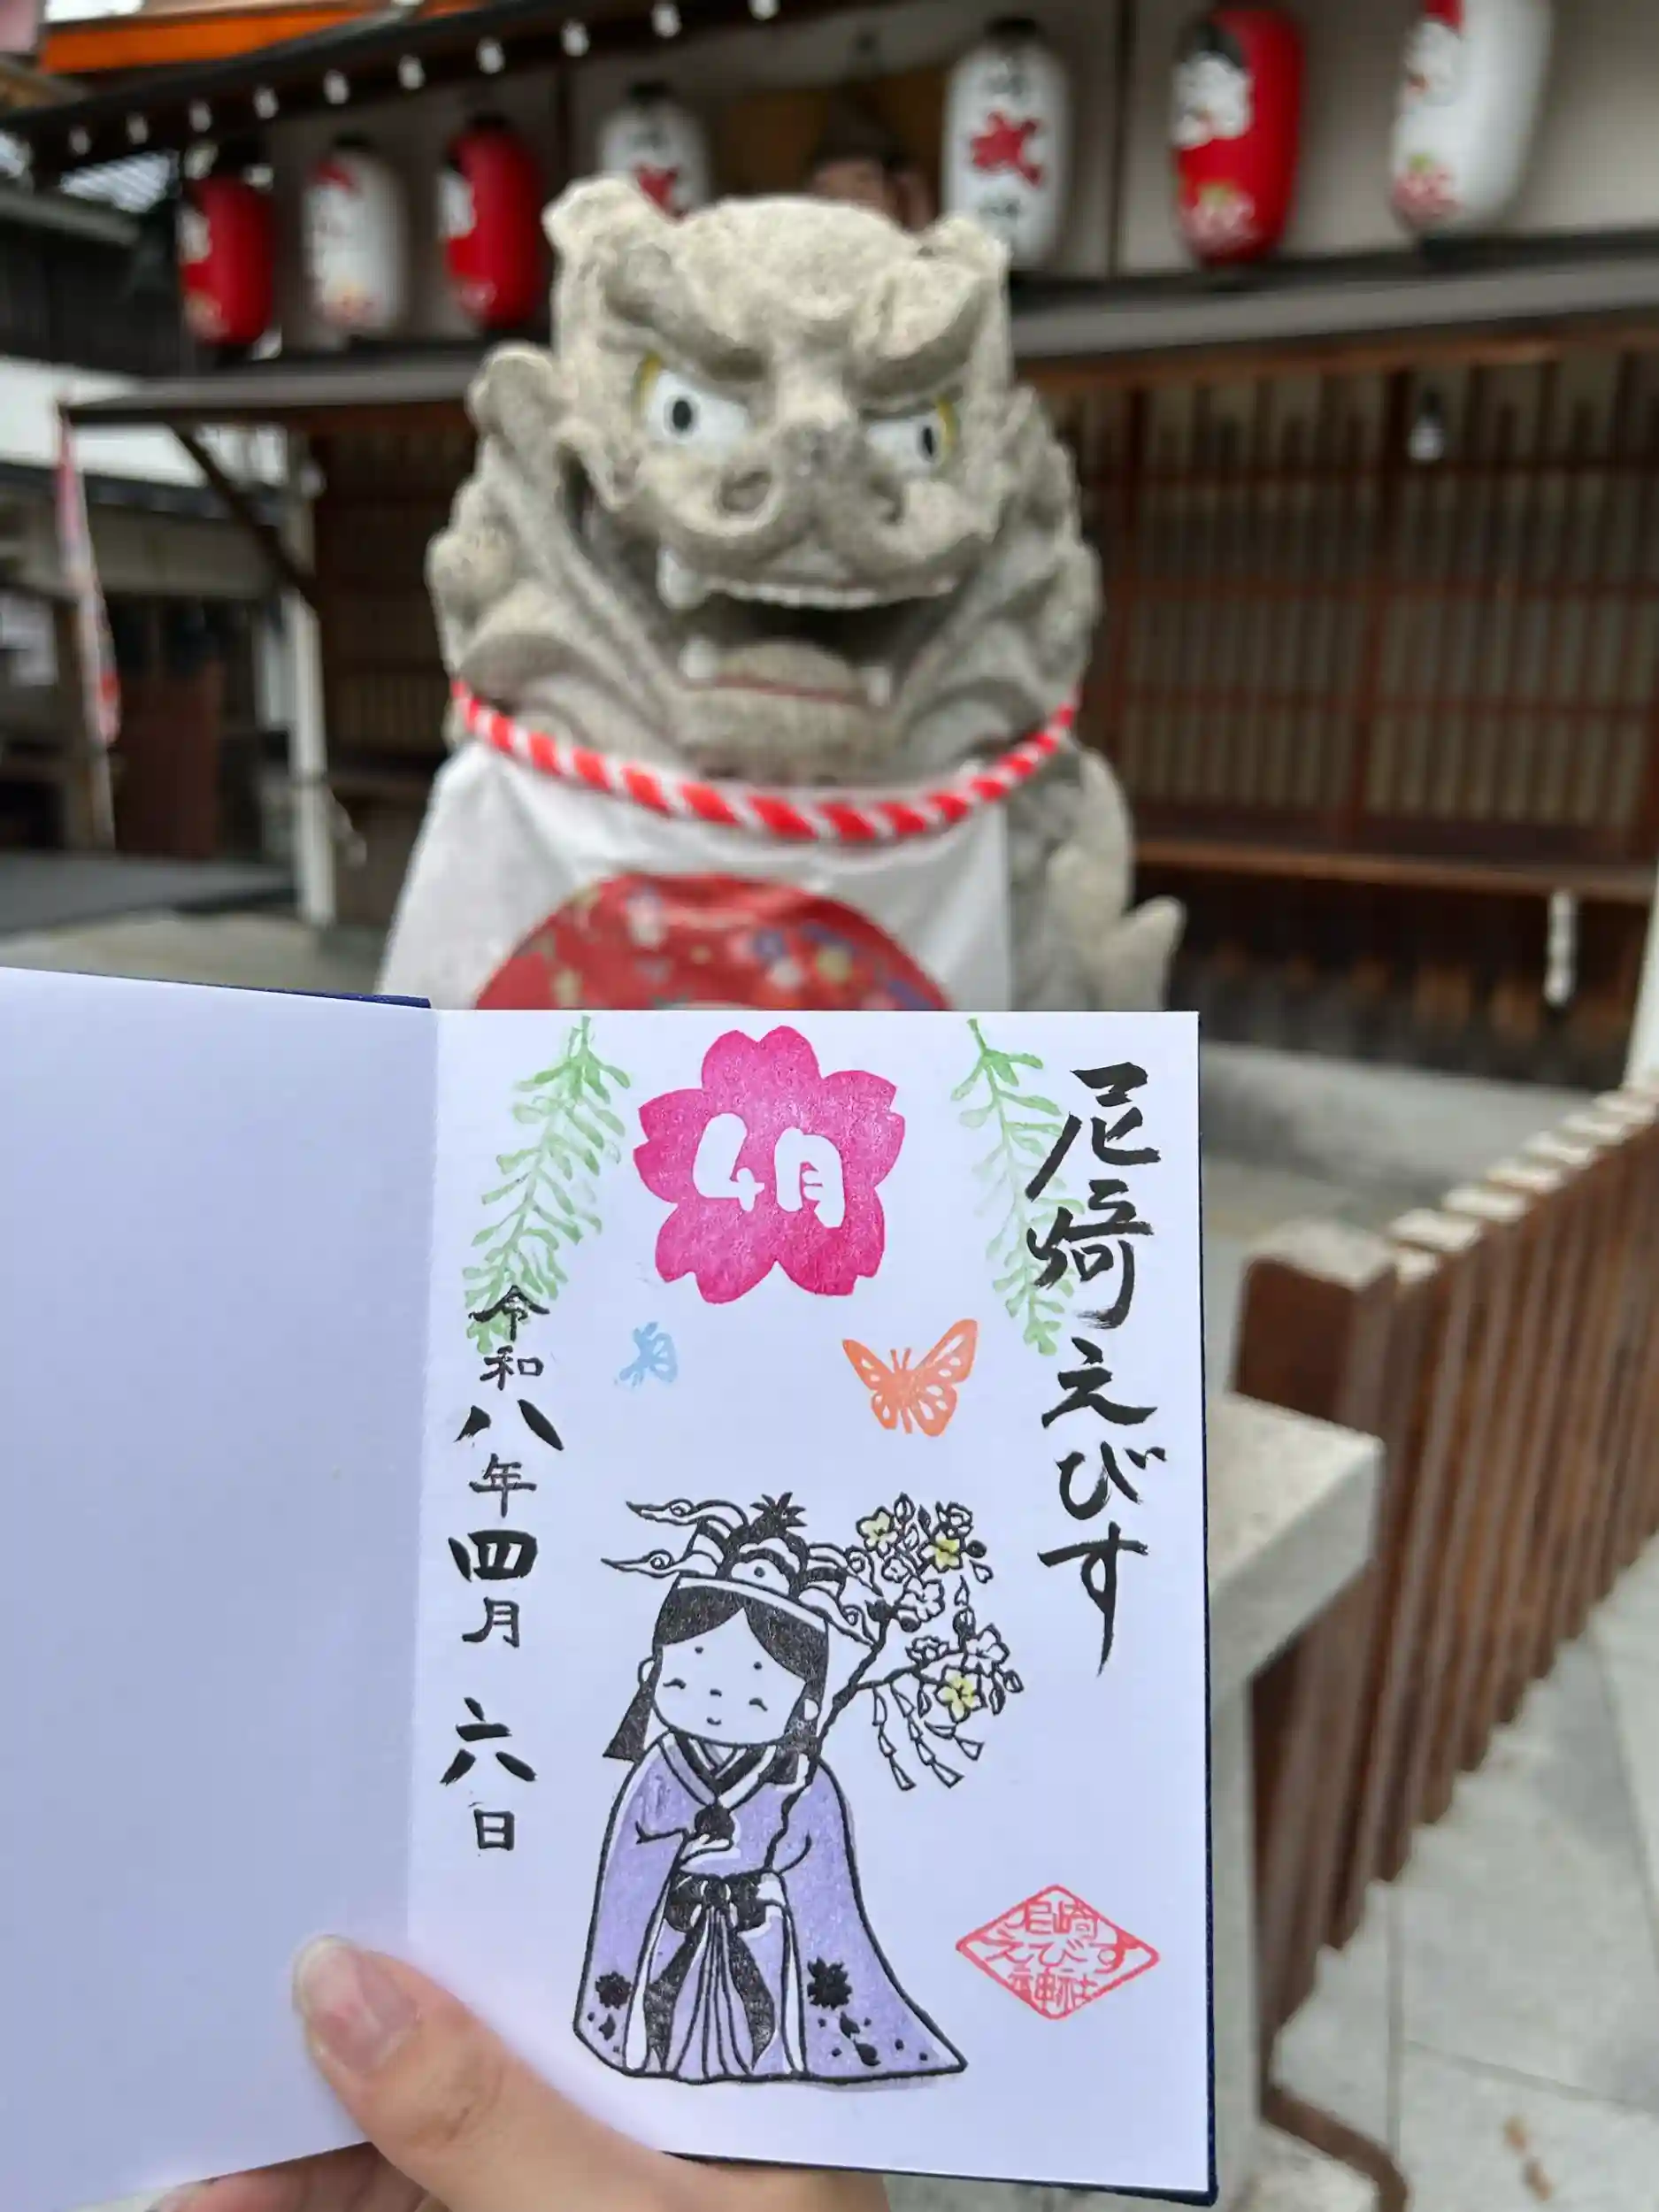 尼崎えびす
4月
令和八年四月六日
尼崎
えびす
神社